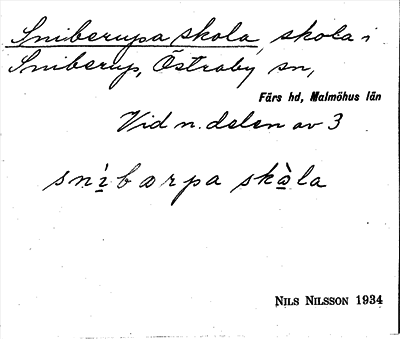 Sniberupa skola, skola i
Sniberup, Östraby sn,
Färs hd, Malmöhus län
Vid n. delen av 3
snìbarpa skàla
NILS NILSSON 1934